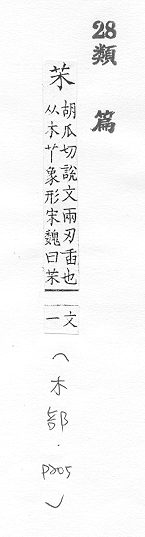 28
類篇
茉
胡瓜切說文兩刃臿也
从木丫象形宋魏曰茉
文一
(木部.P205)